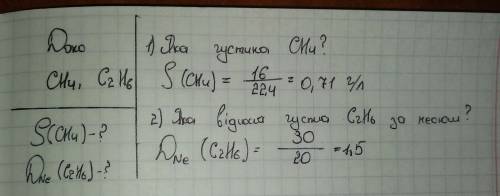 Дано
CH4, C2H6
ρ(CH4) - ?
DNe (C2H6) - ?
1) Яка густина CH4?
ρ(CH4) = 16/22,4 = 0,71 г/л
2) Яка відносна густина C2H6 за неоном?
DNe (C2H6) = 30/20 = 1,5